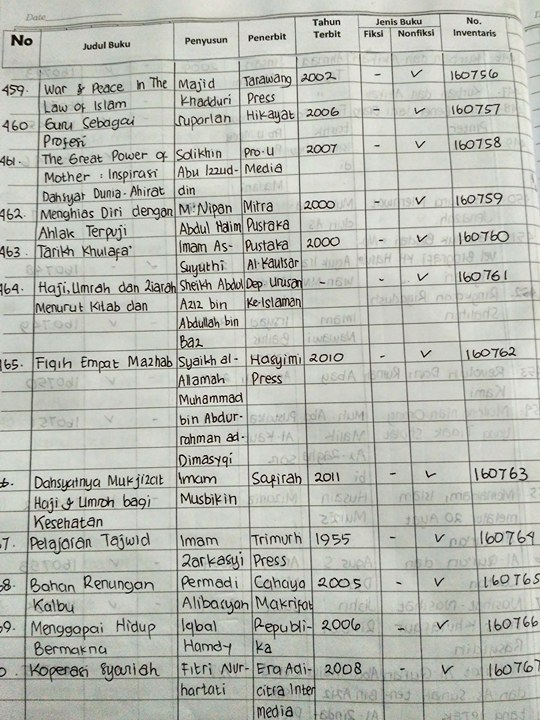 Date
No Judul Buku Penyusun Penerbit Tahun Terbit Jenis Buku Fiksi Nonfiksi No. Inventaris
459. War & Peace In The Majid Tarawang 2002 - ✓ 160756
Law of Islam Khadduri Press
460 Guru Sebagai Suparlan Hikayat 2006 - ✓ 160757
Profesi
461. The Great Power of Solikhin Pro-U 2007 - ✓ 160758
Mother : Inspirasi Abu Izzud- Media
Dahsyat Dunia-Ahirat din
462. Menghias Diri dengan M. Nipan Mitra 2000 - ✓ 160759
Ahlak Terpuji Abdul Halim Pustaka
463. Tarikh Khulafa' Imam As- Pustaka 2000 - ✓ 160760
Suyuthi Al-Kautsar
464. Haji, Umrah dan Ziarah Sheikh Abdul Dep. Urusan - - ✓ 160761
Menurut Kitab dan Aziz bin Ke-Islaman
Abdullah bin
Baz
465. Fiqih Empat Mazhab Syaikh al- Hasyimi 2010 - ✓ 160762
Allamah Press
Muhammad
bin Abdur-
rahman ad-
Dimasyqi
6. Dahsyatnya Mukjizat Imam Safirah 2011 - ✓ 160763
Haji & Umroh bagi Musbikin
Kesehatan
67. Pelajaran Tajwid Imam Trimurti 1955 - ✓ 160764
Zarkasyi Press
68. Bahan Renungan Permadi Cahaya 2005 - ✓ 160765
Kalbu Alibasyah Makrifat
69. Menggapai Hidup Iqbal Republi- 2006 - ✓ 160766
Bermakna Hamdy ka
0. Koperasi Syariah Fitri Nur- Era Adi- 2008 - ✓ 160767
hartati citra Inter
media